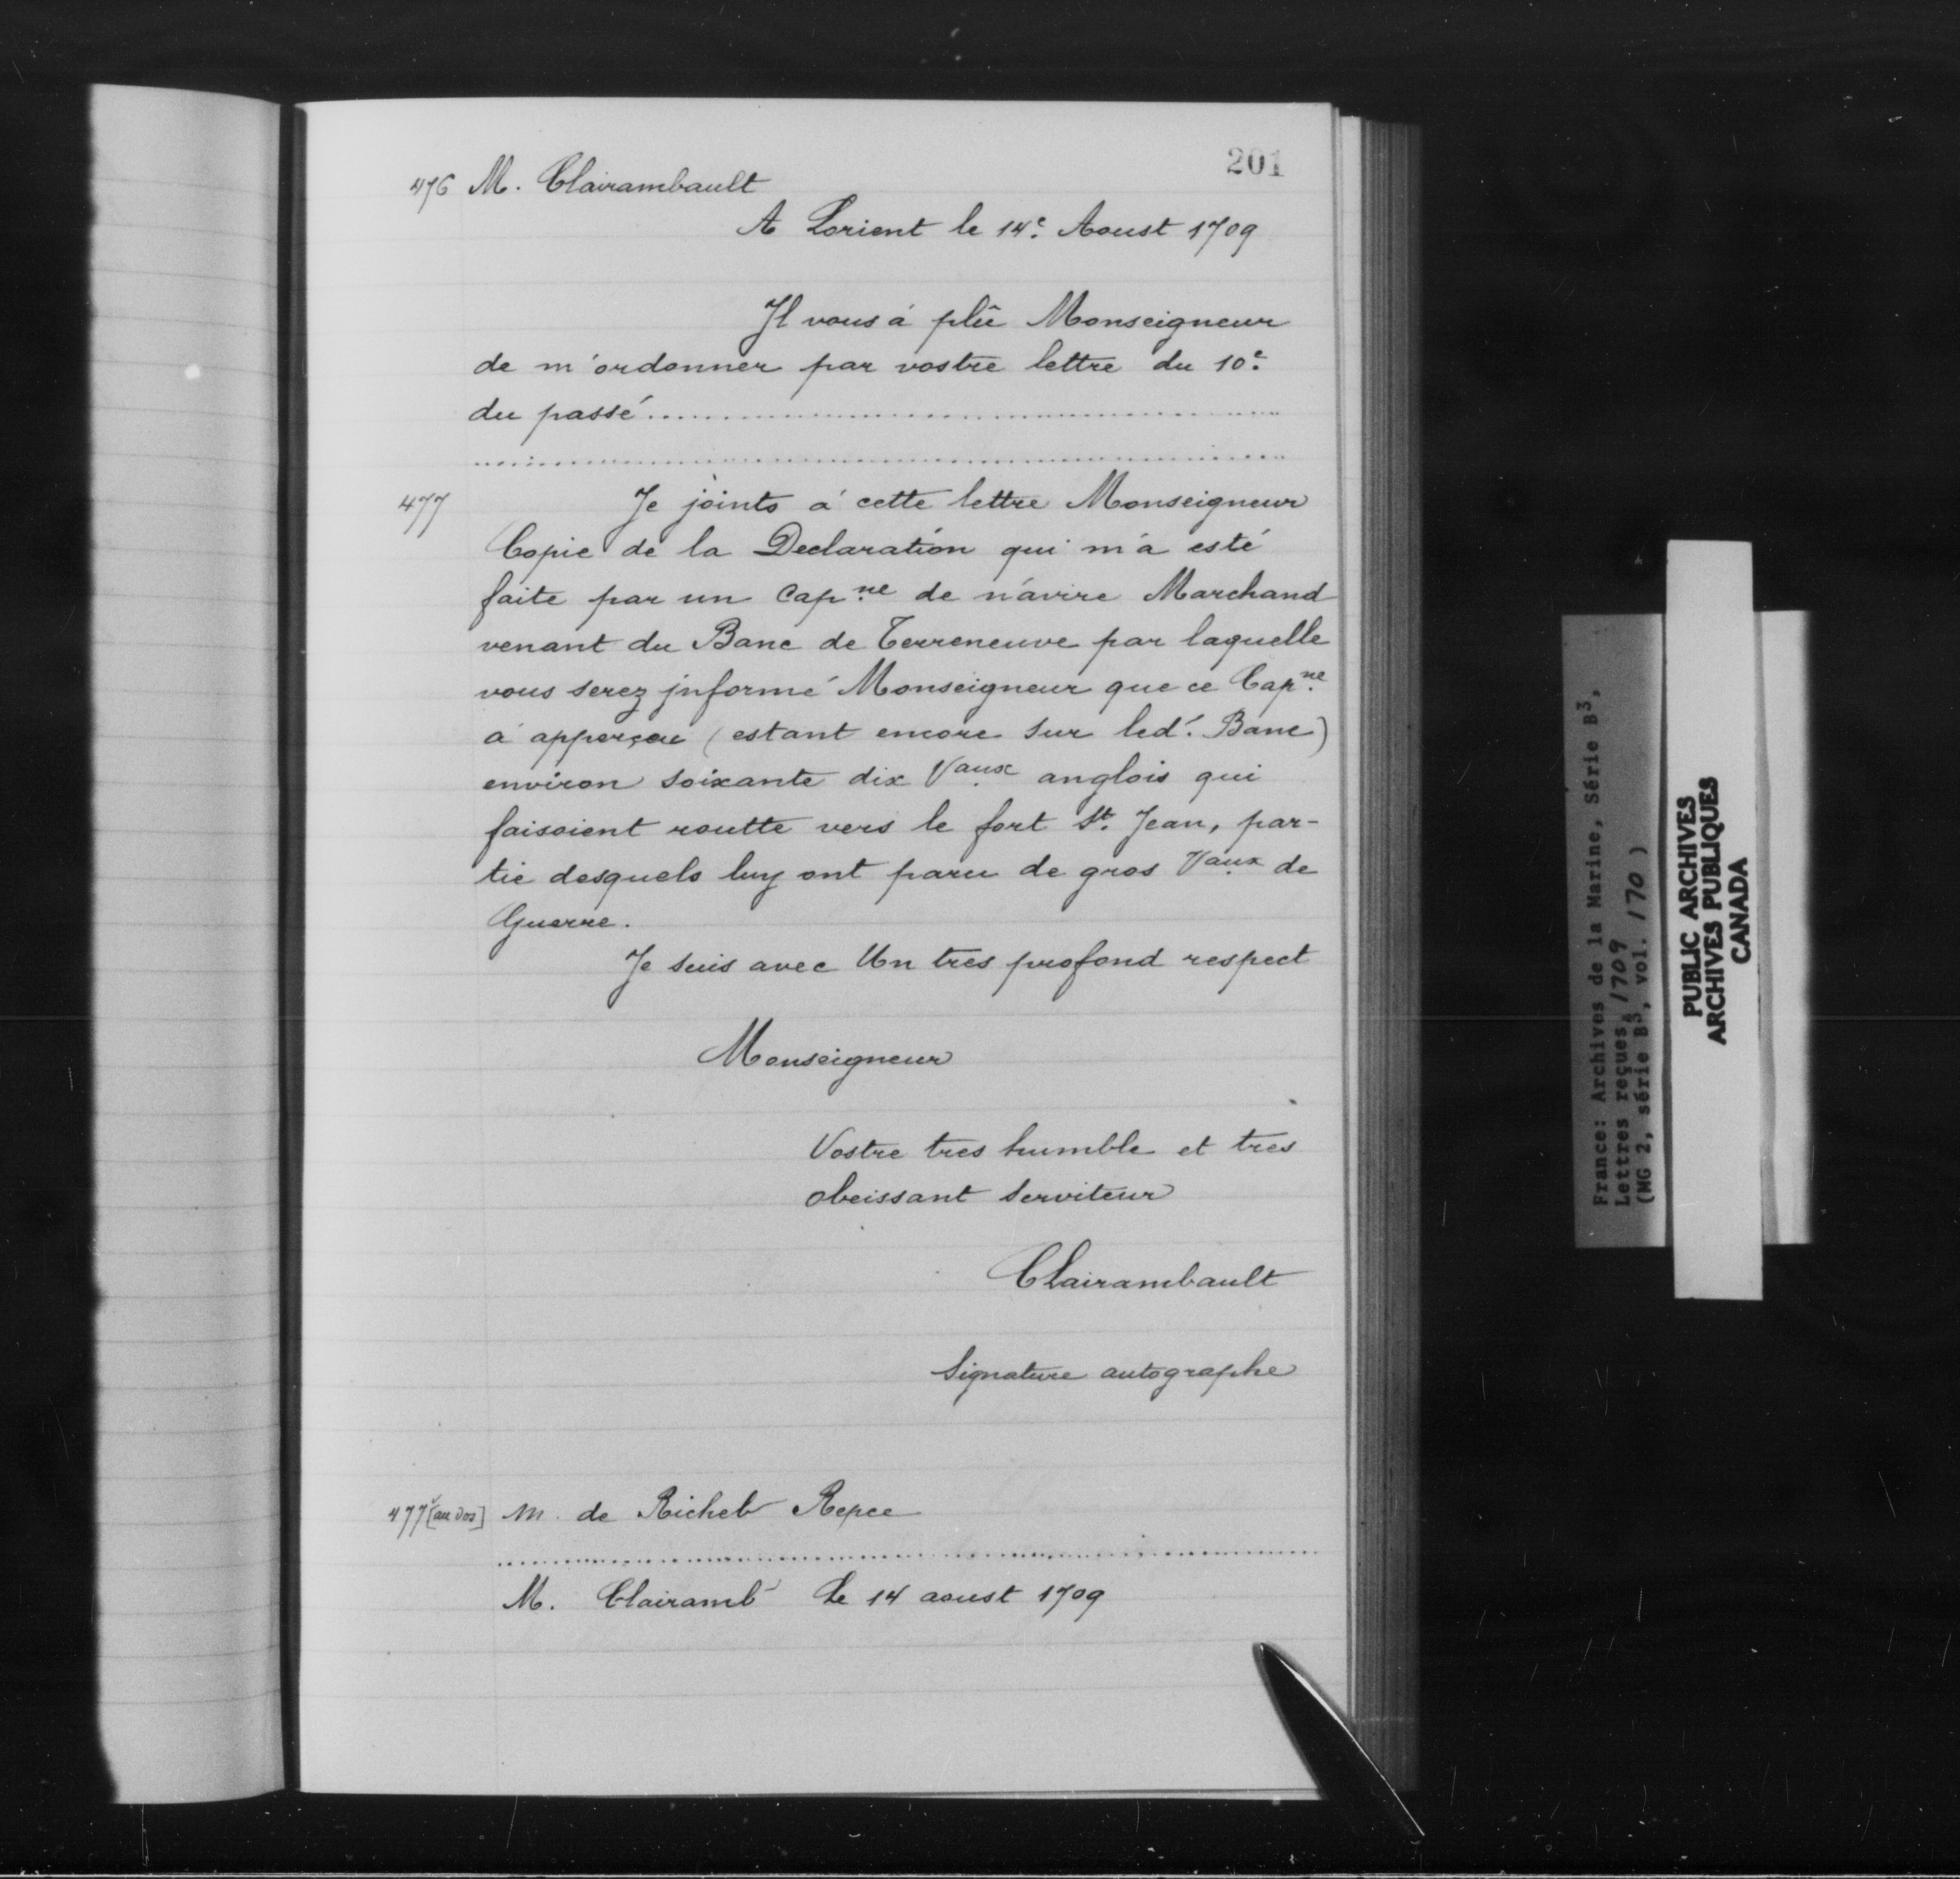 201
476 M. Clairambault
A Lorient le 14e. Aoust 1709
Il vous á plû Monseigneur
de m'ordonner par vostre lettre du 10e.
du passé..............................
..............................
477 Je joints á cette lettre Monseigneur
Copie de la Declaration qui m'a esté
faite par un Capne. de návire Marchand
venant du Banc de Terreneuve par laquelle
vous serez jnformé Monseigneur que ce Capne.
á apperçeu (estant encore sur led. Banc)
environ soixante dix Vaux. anglois qui
faisoient routte vers le fort St. Jean, par-
tie desquels luy ont paru de gros Vaux. de
Guerre.
Je suis avec Un tres profond respect
Monseigneur
Vostre tres humble et tres
obeissant serviteur
Clairambault
Signature autographe
477v [au dos] M. de Richeb Repce
..............................
M. Clairamb Le 14 aoust 1709
France: Archives de la Marine, Série B3,
Lettres reçues, 1709
(MG 2, série B3, vol. 170 )
PUBLIC ARCHIVES
ARCHIVES PUBLIQUES
CANADA